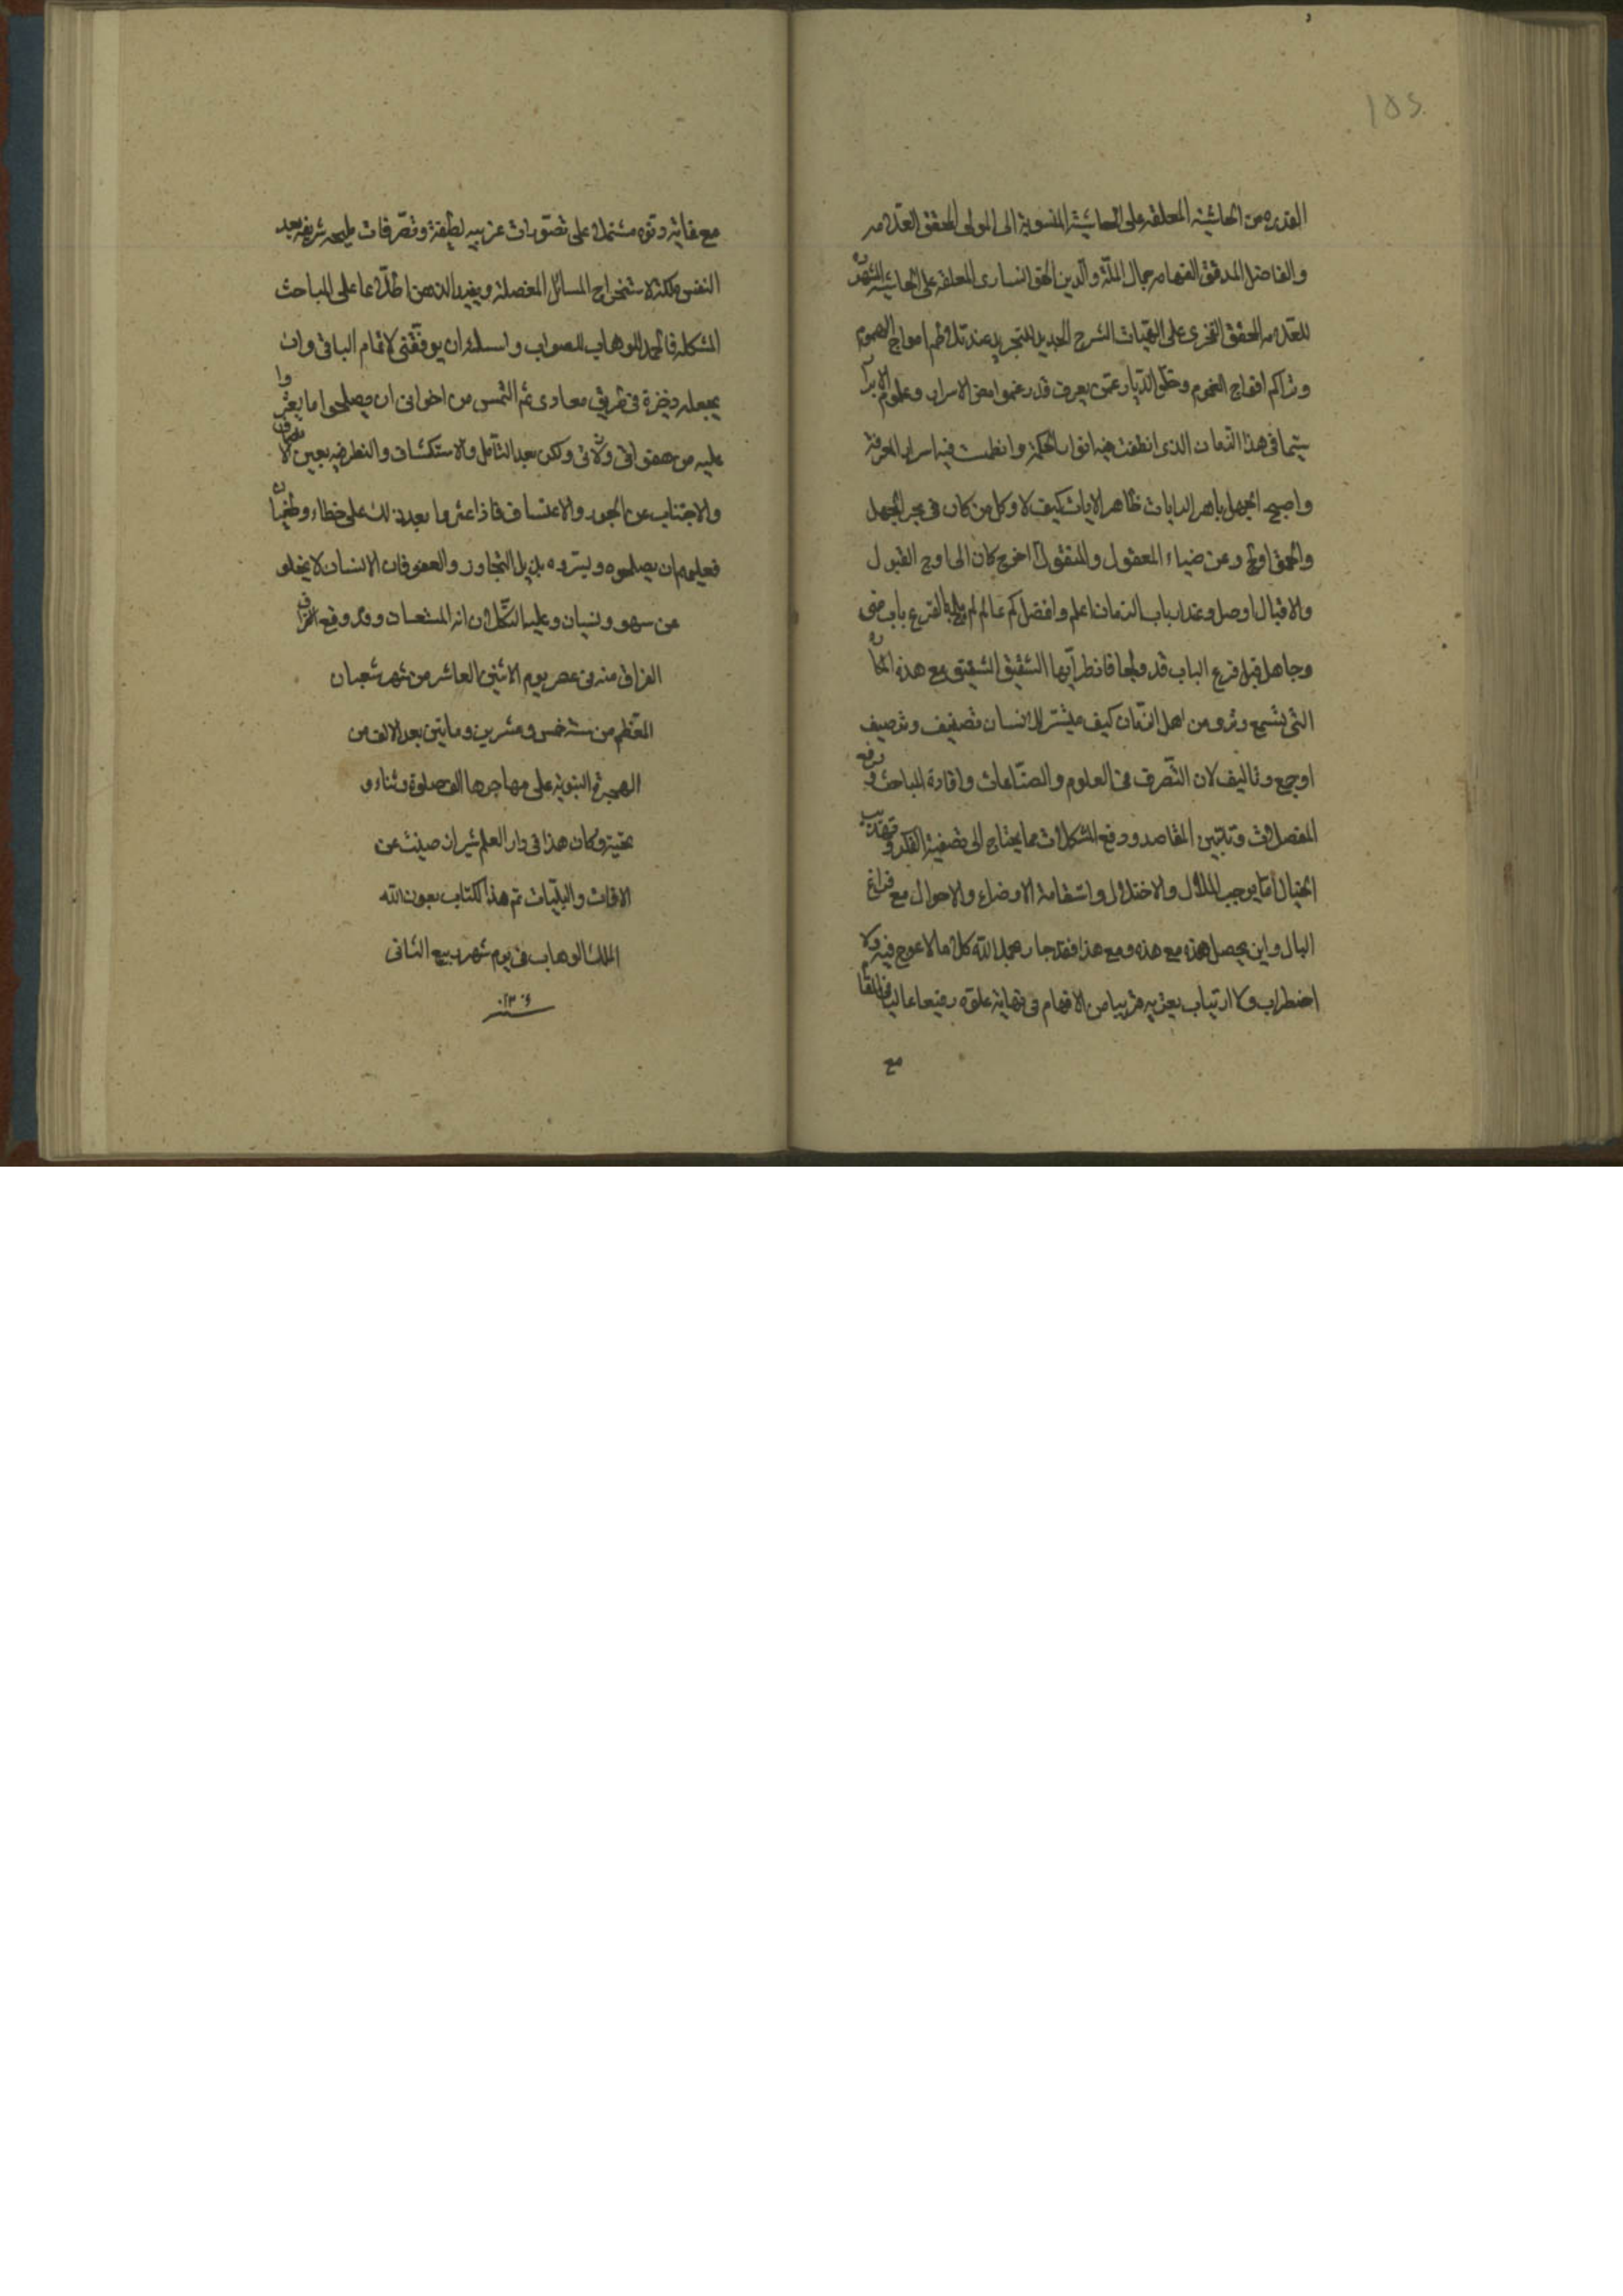 185
القدر من الحاشية المعلقة على الحاشية المنسوبة الى المولى المحقق العلامه
والفاضل المدقق الفهامه جمال الملة والدين المحقق الخوانسارى المعلقة على الحاشية
للعلامه المحقق الخفرى على الهيات الشرح الجديد للتجريد عند تلاطم امواج الهموم
وتراكم افواج الغموم وخلو الديار عمن يعرف قدر غموامض الاسرار وعلوم الابرا
سيما فى هذا الزمان الذى انطفت فيه انوار الحكمة وانطمست فيه اسرار المعرفة
واصبح الجهل باهر الرايات ظاهر الايات كيف لا وكل من كان فى بحر الجهل
والحمق اولج وعن ضياء المعقول والمنقول اخرج كان الى اوج القبول
والاقبال اوصل وعند ارباب الزمان اعلم وافضل كم عالم لم يلج بالقرع باب منى
وجاهل قبل قرع الباب قد ولجا فانظر ايها الشقيق الشفيق مع هذه
التى تسمع وترى من اهل الزمان كيف ميسر للانسان تصنيف وترصيف
او جمع وتاليف لان التصرف فى العلوم والصناعات وافادة المباحث ورفع
المعضلات وتبيين المقاصد ودفع المشكلات مما يحتاج الى تصفية الفكر وتهذيب
الخيال عما يوجب الملال والاختلال واستقامة الاوضاع والاحوال مع فراغ
البال واين يحصل هذه مع هذه ومع هذا فقد جاء بحمد الله كلاما لا عوج فيه ولا
اضطراب ولا ارتياب يعتريه قريبا من الافهام فى نهاية علوه رفيعا عاليا فى المقا
مع
مع غاية دنوه مشتملا على تصورات غريبه لطيفة وتصرفات مليحه شريفه يعد
النفس ملكة لاستخراج المسائل المعضلة ويفيد الذهن اطلاعا على المباحث
المشكله فالحمد للوهاب للصواب واسئله ان يوفقنى لاتمام الباقى وان
يجعله ذخيرة فى طريق معادى ثم التمس من اخوانى ان يصلحوا ما يعثروا
عليه من هفواتى وزلاتى ولكن بعد التأمل والاستكشاف والنظر فيه بعين الانصاف
والاجتناب عن الجور والاعتساف فاذا عثروا بعد ذلك على خطاء وطغيان
فعليهم ان يصلحوه ويستروه بذيل التجاوز والعفو فان الانسان لا يخلو
من سهو ونسيان وعليه التكلان انه المستعان وقد وقع الفراغ
الفراق منه فى عصر يوم الاثنين العاشر من شهر شعبان
المعظم من سنة خمس وعشرين وماتين بعد الالف من
الهجرة النبوية على مهاجرها الف صلوة وثناء و
تحية وكان هذا فى دار العلم شيراز صينت عن
الافات والبليات تم هذا الكتاب بعون الله
الملك الوهاب فى يوم شهر ربيع الثانى
سنه